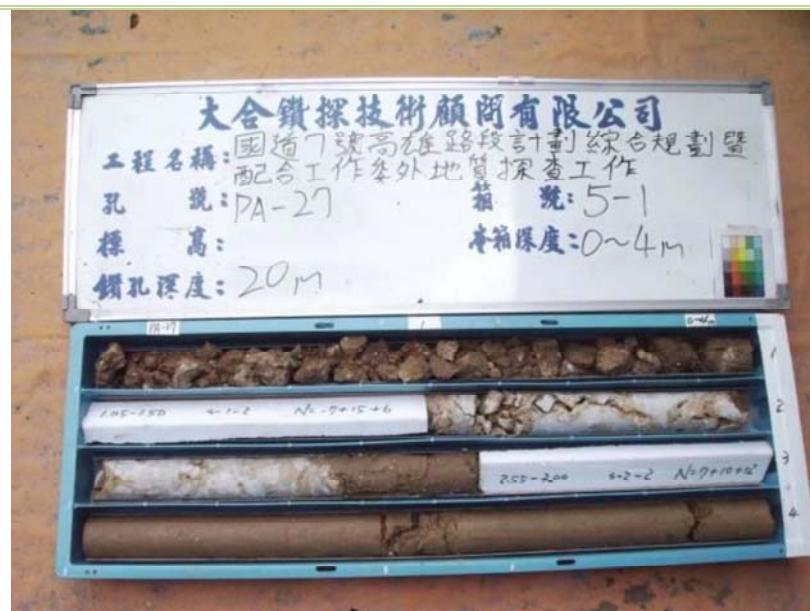 大合鑽探技術顧問有限公司
工程名稱:國道7號高雄路段計劃綜合規劃暨
配合工作委外地質探查工作
孔 號:PA-27 箱 號:5-1
標 高: 本箱深度:0~4m
鑽孔深度:20m
PA-27 1 0-4m
1
1.05-1.50 S-1-2 N=7+15+6
2
3
2.55-3.00 S-2-2 N=7+10+12
4